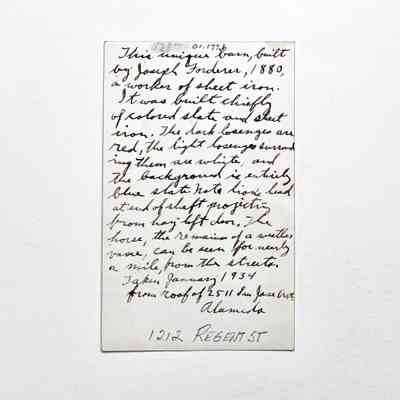 01.1776
This unique barn, built
by Joseph Forderer, 1880,
a worker of sheet iron.
It was built chiefly
of colored slate and sheet
iron. The dark losenges are
red, the light losenges surround
ing them are white, and
the background is entirely
blue slate. Note lion's head
at end of shaft projecting
from hay loft door. The
horse, the remains of a weather
vane, can be seen for nearly
a mile, from the streets.
Taken January 1934
from roof of 2511 San Jose Ave.
Alameda
1212 REGENT ST